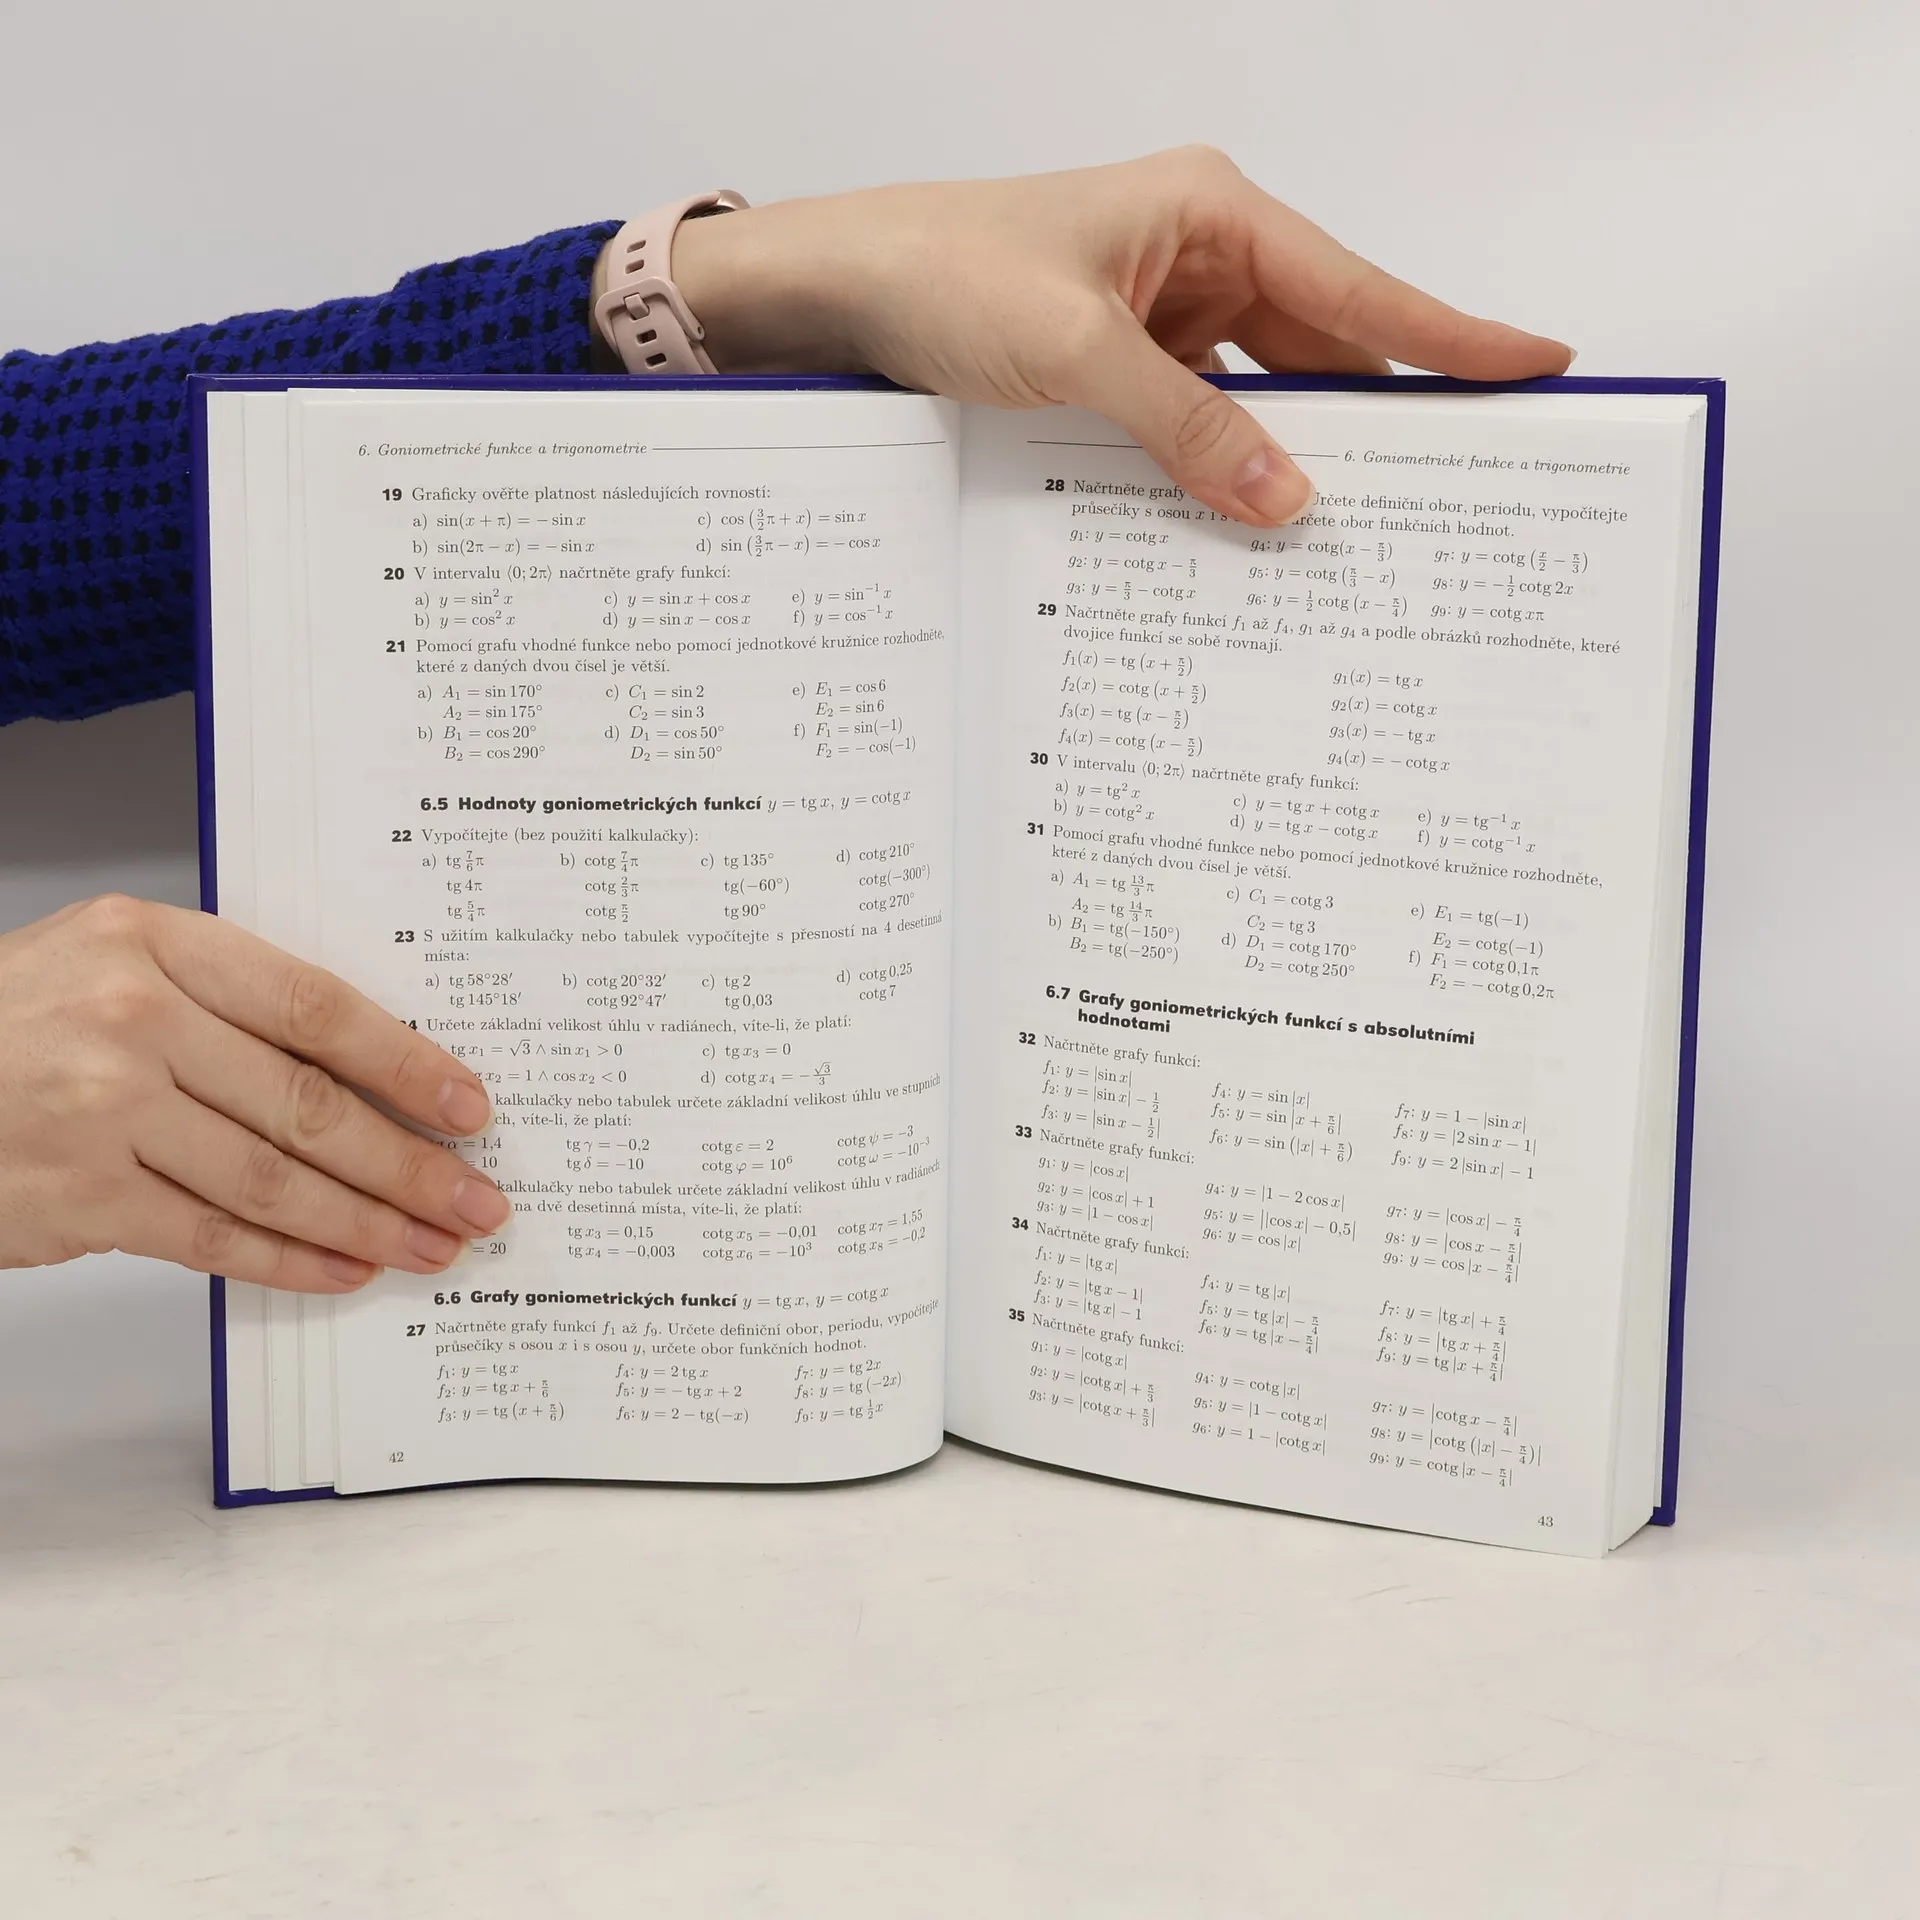 6. Goniometrické funkce a trigonometrie
19 Graficky ověřte platnost následujících rovností:
a) sin(x + π) = − sin x c) cos (3/2 π + x) = sin x
b) sin(2π − x) = − sin x d) sin (3/2 π − x) = − cos x
20 V intervalu ⟨0; 2π⟩ načrtněte grafy funkcí:
a) y = sin² x c) y = sin x + cos x e) y = sin⁻¹ x
b) y = cos² x d) y = sin x − cos x f) y = cos⁻¹ x
21 Pomocí grafu vhodné funkce nebo pomocí jednotkové kružnice rozhodněte,
které z daných dvou čísel je větší.
a) A₁ = sin 170° c) C₁ = sin 2 e) E₁ = cos 6
A₂ = sin 175° C₂ = sin 3 E₂ = sin 6
b) B₁ = cos 20° d) D₁ = cos 50° f) F₁ = sin(−1)
B₂ = cos 290° D₂ = sin 50° F₂ = − cos(−1)
6.5 Hodnoty goniometrických funkcí y = tg x, y = cotg x
22 Vypočítejte (bez použití kalkulačky):
a) tg 7/6 π b) cotg 7/4 π c) tg 135° d) cotg 210°
tg 4π cotg 2/3 π tg(−60°) cotg(−300°)
tg 5/4 π cotg π/2 tg 90° cotg 270°
23 S užitím kalkulačky nebo tabulek vypočítejte s přesností na 4 desetinná
místa:
a) tg 58°28′ b) cotg 20°32′ c) tg 2 d) cotg 0,25
tg 145°18′ cotg 92°47′ tg 0,03 cotg 7
4 Určete základní velikost úhlu v radiánech, víte-li, že platí:
) tg x₁ = √3 ∧ sin x₁ > 0 c) tg x₃ = 0
x₂ = 1 ∧ cos x₂ < 0 d) cotg x₄ = − √3/3
kalkulačky nebo tabulek určete základní velikost úhlu ve stupních
ch, víte-li, že platí:
α = 1,4 tg γ = −0,2 cotg ε = 2 cotg ψ = −3
= 10 tg δ = −10 cotg φ = 10⁶ cotg ω = −10⁻³
kalkulačky nebo tabulek určete základní velikost úhlu v radiánech
na dvě desetinná místa, víte-li, že platí:
tg x₃ = 0,15 cotg x₅ = −0,01 cotg x₇ = 1,55
= 20 tg x₄ = −0,003 cotg x₆ = −10³ cotg x₈ = −0,2
6.6 Grafy goniometrických funkcí y = tg x, y = cotg x
27 Načrtněte grafy funkcí f₁ až f₉. Určete definiční obor, periodu, vypočítejte
průsečíky s osou x i s osou y, určete obor funkčních hodnot.
f₁: y = tg x f₄: y = 2 tg x f₇: y = tg 2x
f₂: y = tg x + π/6 f₅: y = − tg x + 2 f₈: y = tg (−2x)
f₃: y = tg (x + π/6) f₆: y = 2 − tg(−x) f₉: y = tg 1/2 x
42
6. Goniometrické funkce a trigonometrie
28 Načrtněte grafy Určete definiční obor, periodu, vypočítejte
průsečíky s osou x i s určete obor funkčních hodnot.
g₁: y = cotg x g₄: y = cotg(x − π/3) g₇: y = cotg (x/2 − π/3)
g₂: y = cotg x − π/3 g₅: y = cotg (π/3 − x) g₈: y = −1/2 cotg 2x
g₃: y = π/3 − cotg x g₆: y = 1/2 cotg (x − π/4) g₉: y = cotg xπ
29 Načrtněte grafy funkcí f₁ až f₄, g₁ až g₄ a podle obrázků rozhodněte, které
dvojice funkcí se sobě rovnají.
f₁(x) = tg (x + π/2) g₁(x) = tg x
f₂(x) = cotg (x + π/2) g₂(x) = cotg x
f₃(x) = tg (x − π/2) g₃(x) = − tg x
f₄(x) = cotg (x − π/2) g₄(x) = − cotg x
30 V intervalu ⟨0; 2π⟩ načrtněte grafy funkcí:
a) y = tg² x c) y = tg x + cotg x e) y = tg⁻¹ x
b) y = cotg² x d) y = tg x − cotg x f) y = cotg⁻¹ x
31 Pomocí grafu vhodné funkce nebo pomocí jednotkové kružnice rozhodněte,
které z daných dvou čísel je větší.
a) A₁ = tg 13/3 π c) C₁ = cotg 3 e) E₁ = tg(−1)
A₂ = tg 14/3 π C₂ = tg 3 E₂ = cotg(−1)
b) B₁ = tg(−150°) d) D₁ = cotg 170° f) F₁ = cotg 0,1π
B₂ = tg(−250°) D₂ = cotg 250° F₂ = − cotg 0,2π
6.7 Grafy goniometrických funkcí s absolutními
hodnotami
32 Načrtněte grafy funkcí:
f₁: y = |sin x| f₄: y = sin |x| f₇: y = 1 − |sin x|
f₂: y = |sin x| − 1/2 f₅: y = sin |x + π/6| f₈: y = |2 sin x − 1|
f₃: y = |sin x − 1/2| f₆: y = sin (|x| + π/6) f₉: y = 2 |sin x| − 1
33 Načrtněte grafy funkcí:
g₁: y = |cos x| g₄: y = |1 − 2 cos x| g₇: y = |cos x| − π/4
g₂: y = |cos x| + 1 g₅: y = ||cos x| − 0,5| g₈: y = |cos x − π/4|
g₃: y = |1 − cos x| g₆: y = cos |x| g₉: y = cos |x − π/4|
34 Načrtněte grafy funkcí:
f₁: y = |tg x| f₄: y = tg |x| f₇: y = |tg x| + π/4
f₂: y = |tg x − 1| f₅: y = tg |x| − π/4 f₈: y = |tg x + π/4|
f₃: y = |tg x| − 1 f₆: y = tg |x − π/4| f₉: y = tg |x + π/4|
35 Načrtněte grafy funkcí:
g₁: y = |cotg x| g₄: y = cotg |x| g₇: y = |cotg x − π/4|
g₂: y = |cotg x| + π/3 g₅: y = |1 − cotg x| g₈: y = |cotg (|x| − π/4)|
g₃: y = |cotg x + π/3| g₆: y = 1 − |cotg x| g₉: y = cotg |x − π/4|
43